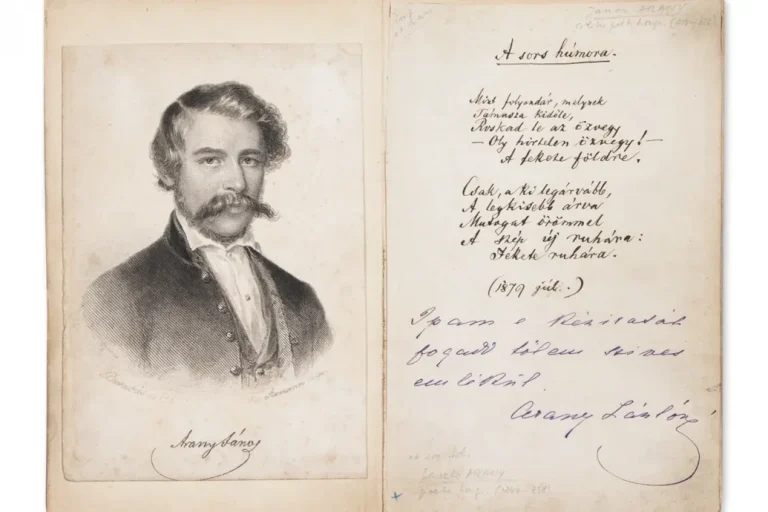 Arany János
János ARANY
A sors húmora.
Mint folyondár, melynek
Támasza kidőle,
Roskad le az özvegy
— Oly hirtelen özvegy! —
A fekete földre.
Csak, a ki legárvább,
A legkisebb árva
Mutogat örömmel
A szép új ruhára:
Fekete ruhára.
(1879 júl..)
Ipam e kéziratát
fogadd tőlem szives
emlékül.
Arany Lászlóné
ARANY